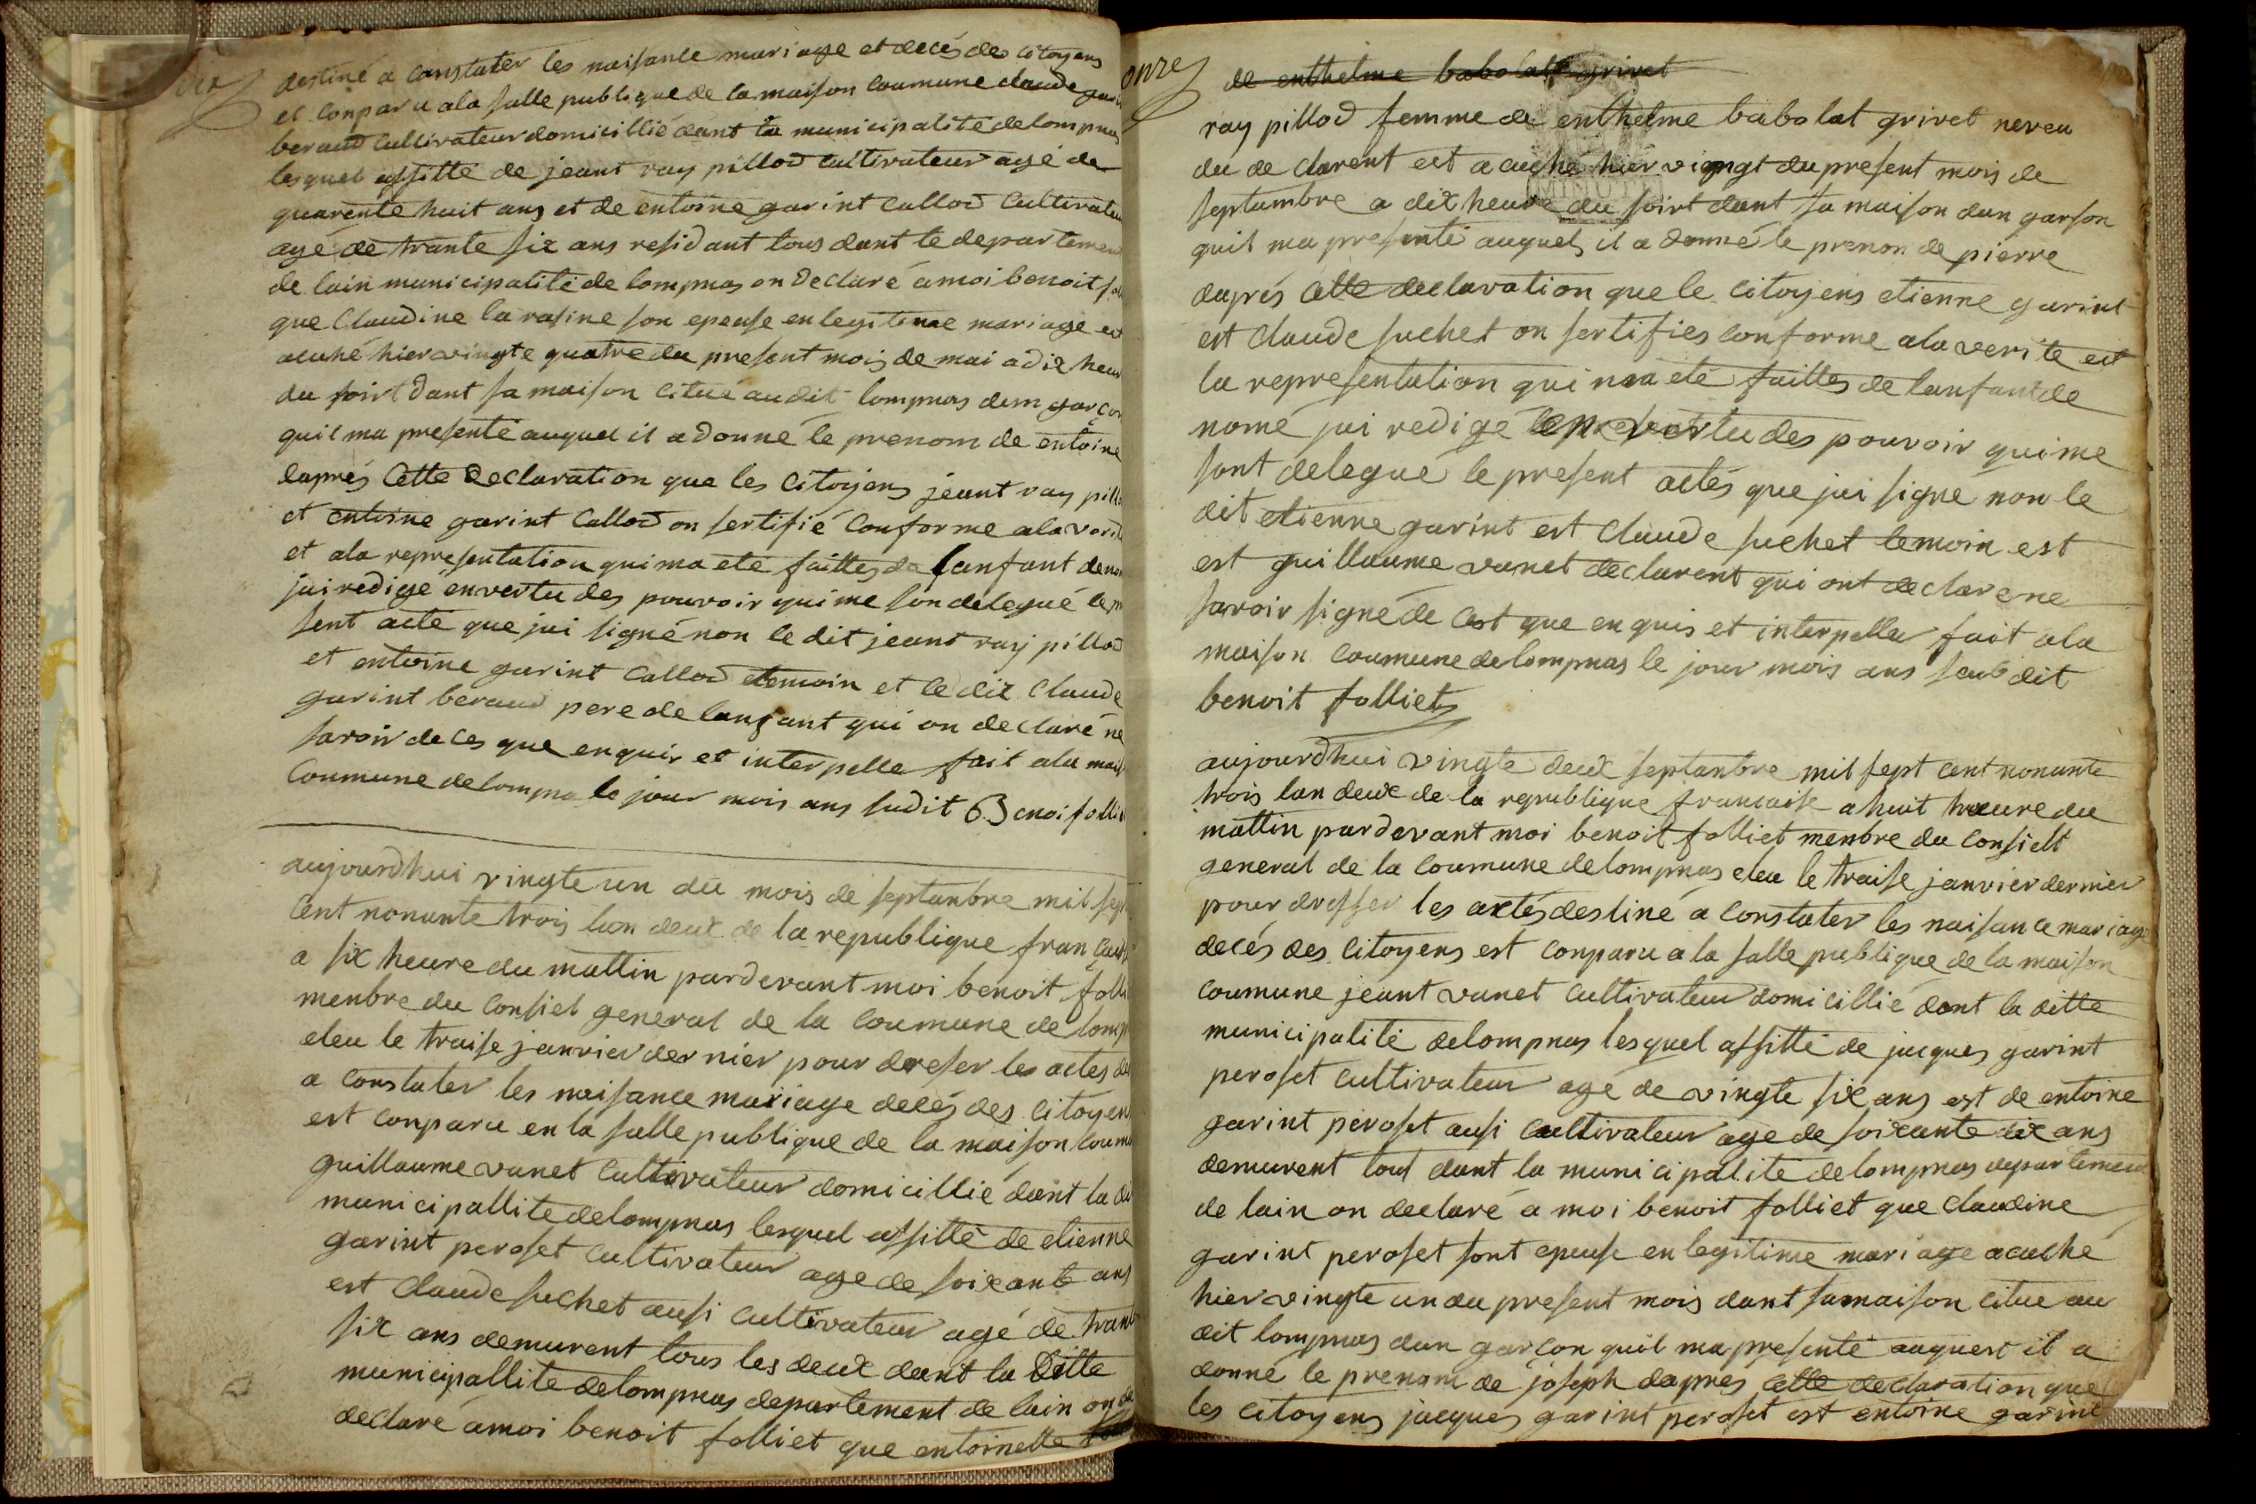 dix
destiné a constater les naisance mariage et decés des citoyens
et conparu ala salle publique de la maison coumune claude garin
beraud cultivateur domicillié dant la municipalité delompnas
lesquel assitté de jeant ray pillod cultivateur agé de
quarente huit ans et de entoine garint callod cultivateu
agé de trante six ans residant tous dant le departemen
de lain municipalité de lompnas on declaré a moi benoit fol
que claudine la rasine son epeuse en legiteme mariage est
acuhé hier vingte quatre du present mois de mai a dix heur
du soirt dant sa maison citué audit lompnas dun garçon
quil ma presenté auquel il a donné le prenom de entoine
daprés cette declaration que les citoyens jeant ray pillo
et entoine garint callod on sertifié conforme ala verit
et ala representation qui ma eté faittes de lanfant deno
jai redigé en vertu des pouvoir qui me son delegué le pre
sent acte que jai signé non le dit jeant ray pillod
et entoine garint callod temoin et le dit claude
garint beraud pere de lanfant qui on declaré ne
savoir de ces que enquis et interpelle fait ala mais
coumune delompna le jour mois ans sudit Benoi follie
aujourdhui vingte un du mois de septanbre mil sept
cent nonante trois lan deux de la republique francais
a six heure du mattin pardevant moi benoit folli
menbre du consiel general de la coumune de lomp
eleu le traise janvier dernier pour dreser les actes des
a constater les naisance mariage decés des citoyens
est conparu en la salle publique de la maison coumu
guillaume vanet cultivateur domicillié dant la di
municipallité delompnas lesquel assitté de etienne
garint peroset cultivateur age de soixante ans
est claude suchet ausi cultivateur agé de trante
six ans demurent tous les deux dant la ditte
municipallité delompnas departement de lain on de
declaré a moi benoit folliet que entoinette
onze
de enthelme babolat grivet
ray pillod femme de enthelme babolat grivet neveu
du de clarent est acuché hier vingt du present mois de
septambre a dix heure du soirt dant sa maison dun garson
quil ma presenté auquel il a donné le prenon de pierre
daprés cette declaration que le citoyens etienne garint
est claude suchet on sertifies conforme ala verité est
la representation qui ma eté faittes de lanfant de
nomé jai redigé en vertu des pouvoir qui me
sont delegué le present actés que jai signé non le
dit etienne garint est claude suchet temoin est
est guillaume vanet declarent qui ont declare ne
savoir signé de cest que enquis et interpeller fait ala
maison coumune delompnas le jour mois ans sub dit
benoit folliet
aujourdhui vingte deux septanbre mil sept cent nonante
trois lan deux de la republique francaise a huit heure du
mattin pardevant moi benoit folliet menbre du consielt
general de la coumune delompnas eleu le traise janvier dernier
pour dresser les actés destiné a constater les naisance mariage
decés des citoyens est conparu a la salle publique de la maison
coumune jeant vanet cultivateur domicillié dant la ditte
municipalité delompnas lesquel assitté de jacques garint
peroset cultivateur age de vingte six ans est de entoine
garint peroset ausi cultivateur age de soixante dix ans
demurent tout dant la municipalité delompnas departement
de lain on declaré a moi benoit folliet que claudine
garint peroset sont epeuse en legitime mariage acuché
hier vingte un du present mois dant sa maison citue au
dit lompnas dun garçon quil ma presenté auquest il a
donné le prenom de joseph dapres cette declaration que
les citoyens jacques garint peroset est entoine garint